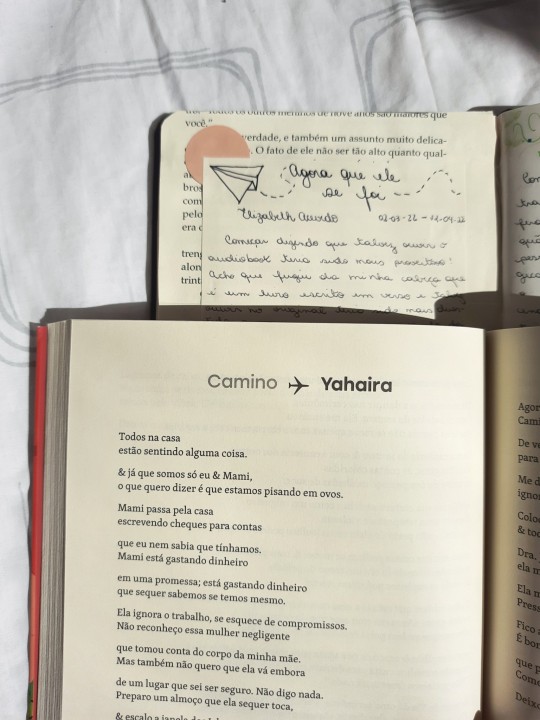 "Todos os outros meninos de nove anos são maiores que
você."
verdade, e também um assunto muito delica-
. O fato de ele não ser tão alto quanto qual-
bros
com
pelo
era
treng
alon
trint
Agora que ele
se foi
Elizabeth Acevedo
Começar dizendo que talvez ouvir o
audiobook teria sido mais proveitoso!
Acho que fugiu da minha cabeça que
é um livro escrito em verso e talvez
Camino Yahaira
Todos na casa
estão sentindo alguma coisa.
& já que somos só eu & Mami,
o que quero dizer é que estamos pisando em ovos.
Mami passa pela casa
escrevendo cheques para contas
que eu nem sabia que tínhamos.
Mami está gastando dinheiro
em uma promessa; está gastando dinheiro
que sequer sabemos se temos mesmo.
Ela ignora o trabalho, se esquece de compromissos.
Não reconheço essa mulher negligente
que tomou conta do corpo da minha mãe.
Mas também não quero que ela vá embora
de um lugar que sei ser seguro. Não digo nada.
Preparo um almoço que ela sequer toca,
Agor
Cami
De ve
para
Me d
ignor
Coloc
& toc
Dra.
ela m
Ela m
Press
Fico a
É bor
que p
Como
Deixo